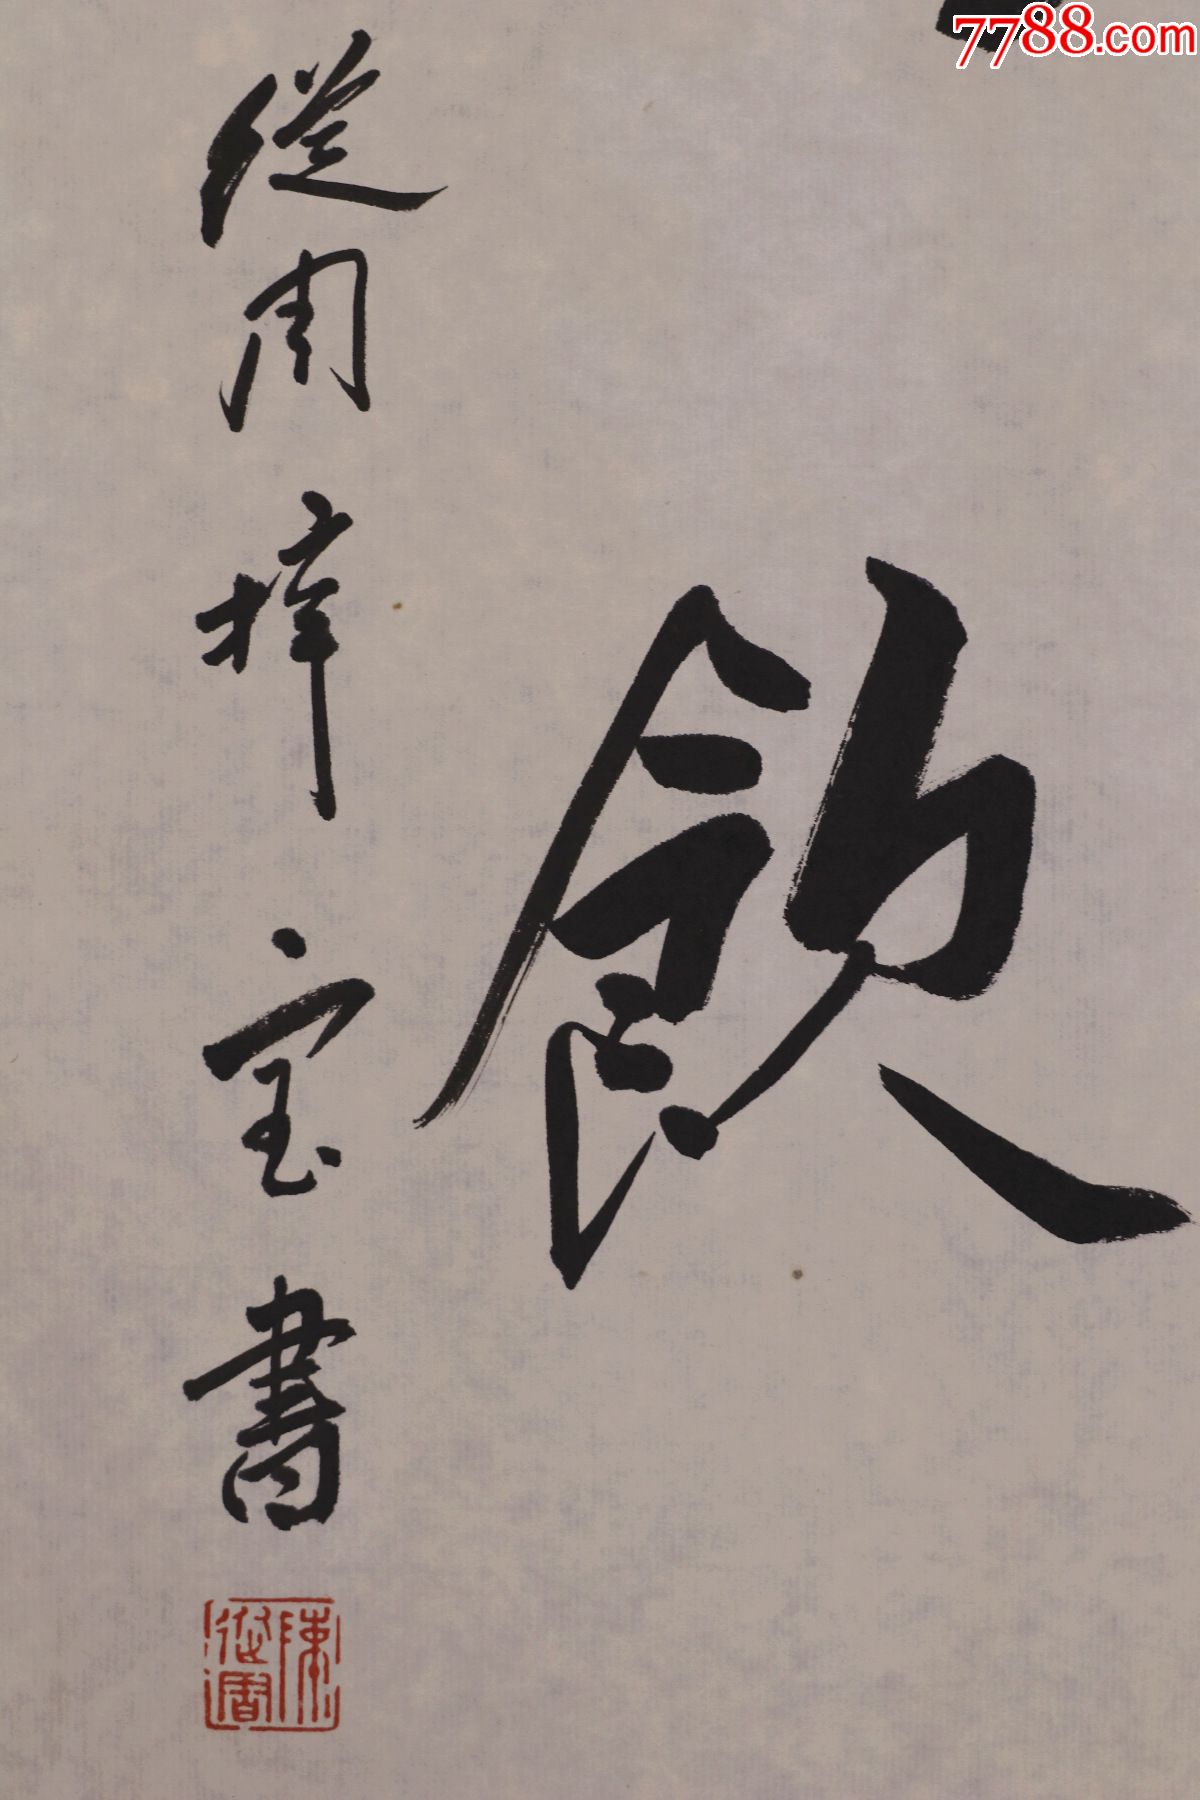 7788.com
飲
從周梓室書
陳從周